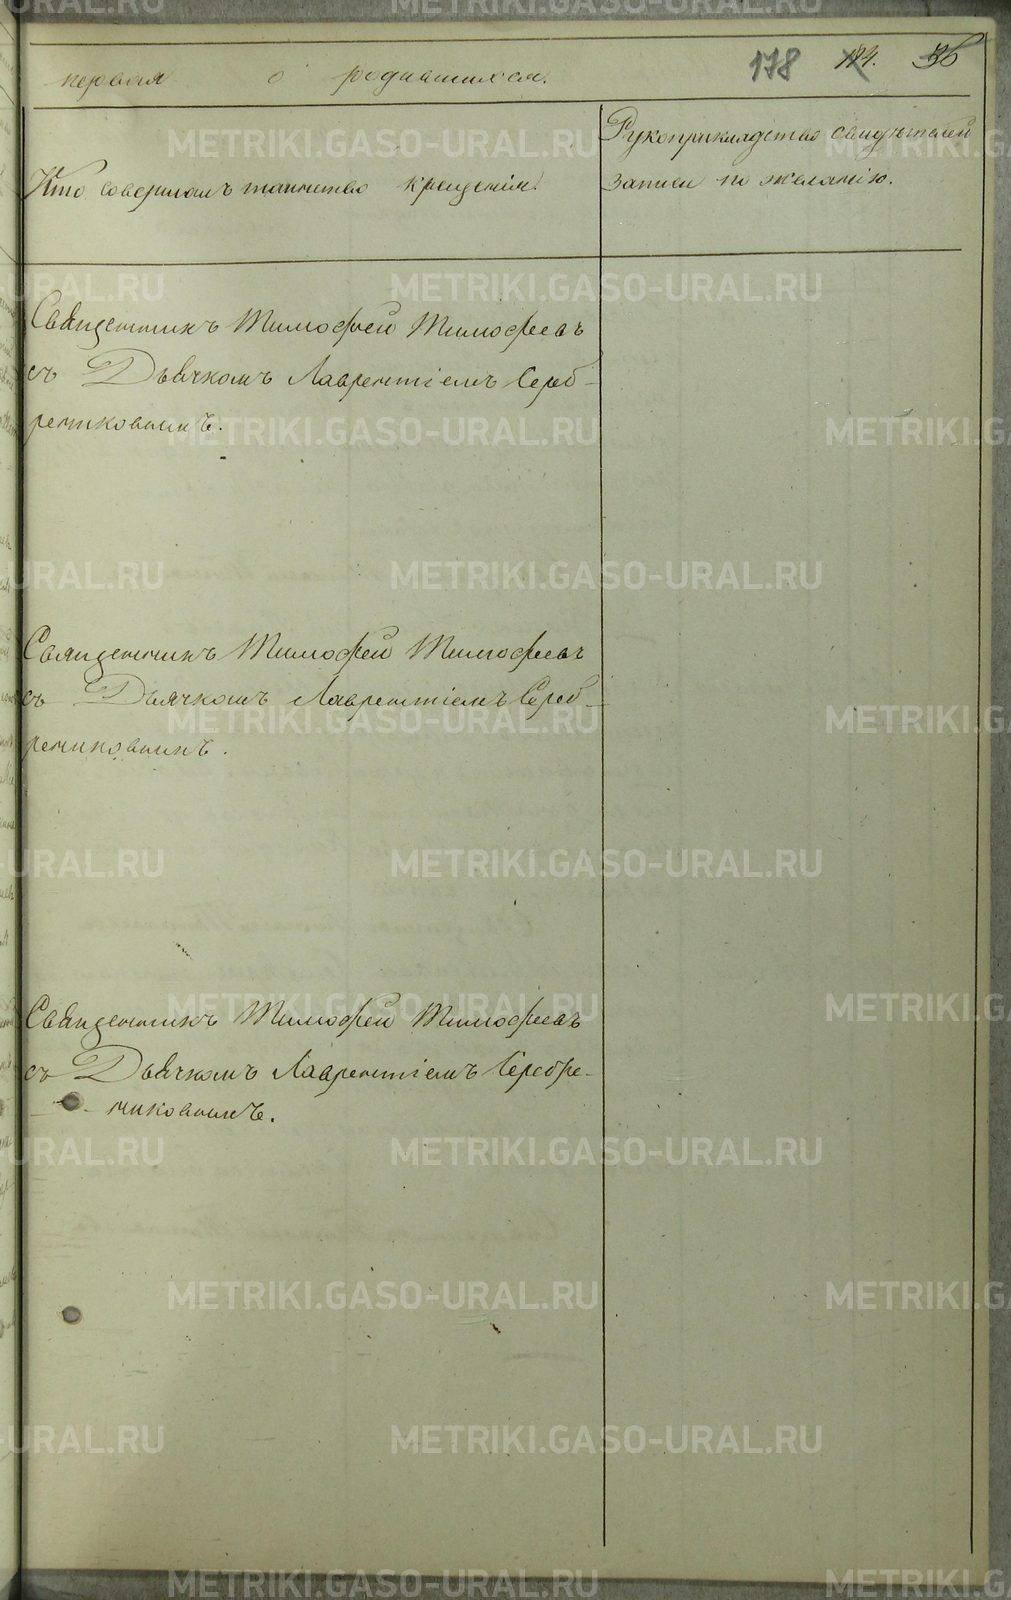 первая о родившихся.
178 184. 36
Кто совершалъ таинство крещенія.
Рукоприкладство свидѣтелей
записи по желанію.
Священникъ Тимофей Тимофеевъ
съ Дьячкомъ Лаврентіемъ Сереб-
рениковымъ.
Священникъ Тимофей Тимофеевъ
съ Дьячкомъ Лаврентіемъ Сереб-
рениковымъ.
Священникъ Тимофей Тимофеевъ
съ Дьячкомъ Лаврентіемъ Серебре-
никовымъ.
METRIKI.GASO-URAL.RU